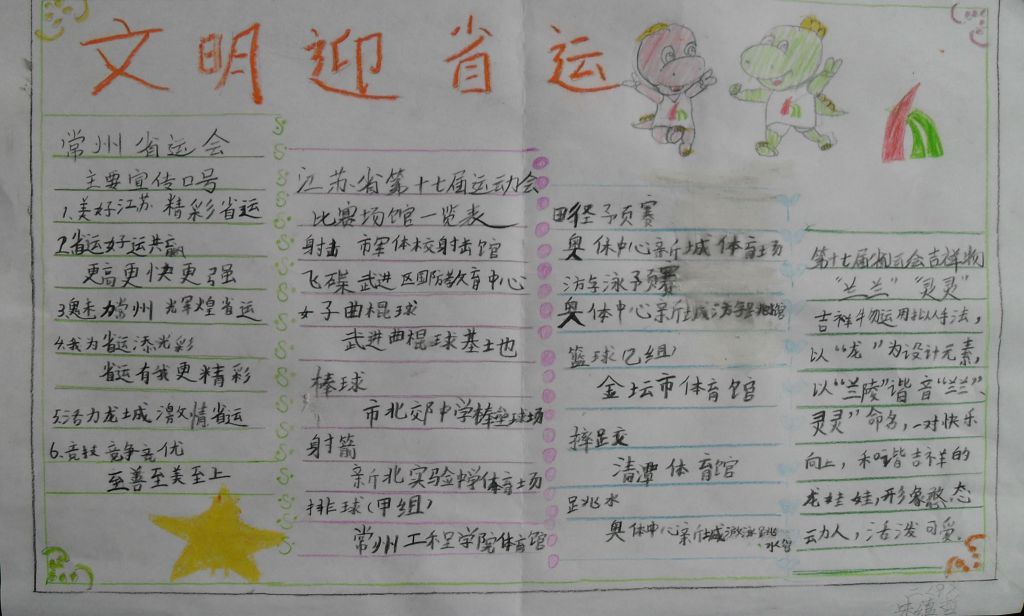 文明迎省运
常州省运会
主要宣传口号
1.美好江苏 精彩省运
2.省运好运共赢
更高更快更强
3.魅力常州 光辉煌省运
4.我为省运添光彩
省运有我更精彩
5.活力龙城 激情省运
6.竞技竞争竞优
至善至美至上
江苏省第十七届运动会
比赛场馆一览表
射击 市军体校射击馆
飞碟 武进区国际教育中心
女子曲棍球
武进曲棍球基地
棒球
市北郊中学棒垒球场
射箭
新北实验中学体育场
排球(甲组)
常州工程学院体育馆
田径予预赛
奥体中心新城体育场
游泳予预赛
奥体中心新城游泳跳水馆
篮球(乙组)
金坛市体育馆
摔跤
清潭体育馆
跳水
奥体中心新城游泳跳水馆
第十七届省运会吉祥物
“兰兰”“灵灵”
吉祥物运用拟人手法,
以“龙”为设计元素,
以“兰陵”谐音“兰兰”、
灵灵”命名,一对快乐
向上,和谐吉祥的
龙娃娃,形象憨态
动人,活泼可爱.